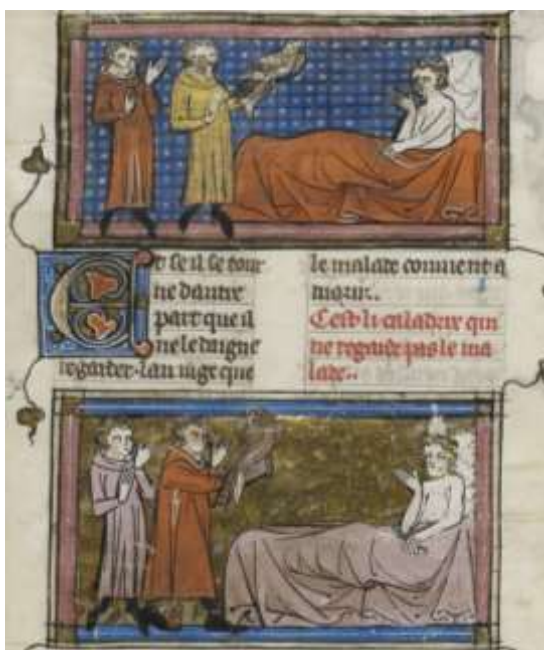 Et se il se tour
ne dautre
part que il
ne le daigne
regarder. lan iuge que
le malade couuient a
morir..
Cest li caladrix qui
ne regarde pas le ma
lade..